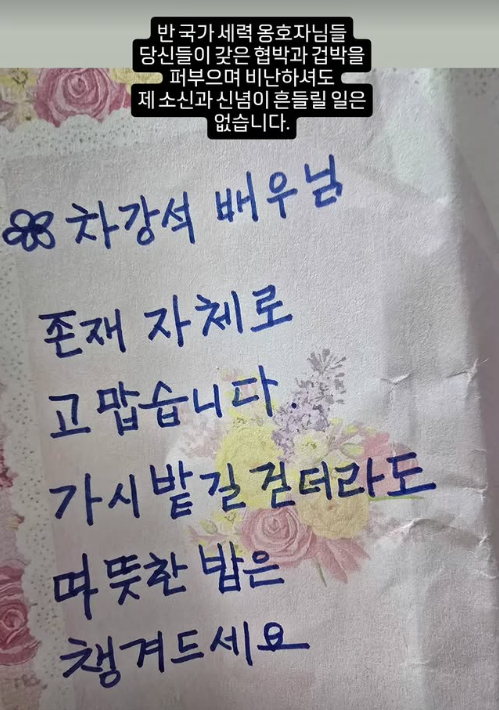 반 국가 세력 옹호자님들
당신들이 갖은 협박과 겁박을
퍼부으며 비난하셔도
제 소신과 신념이 흔들릴 일은
없습니다.
차강석 배우님
존재 자체로
고맙습니다.
가시밭길 걷더라도
따뜻한 밥은
챙겨드세요